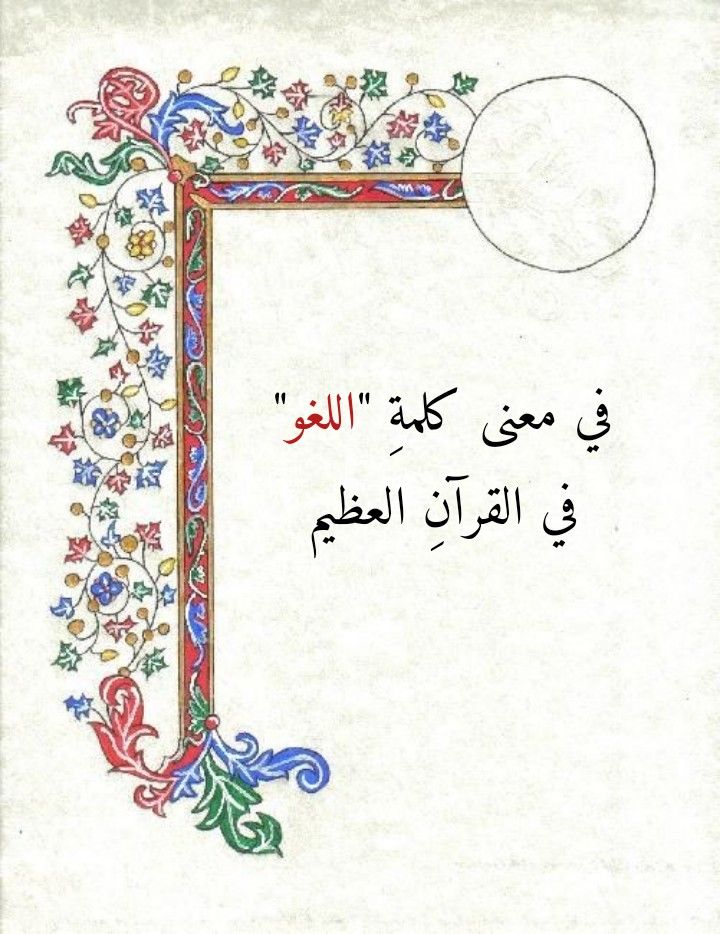 في معنى كلمةِ "اللغو"
في القرآنِ العظيم